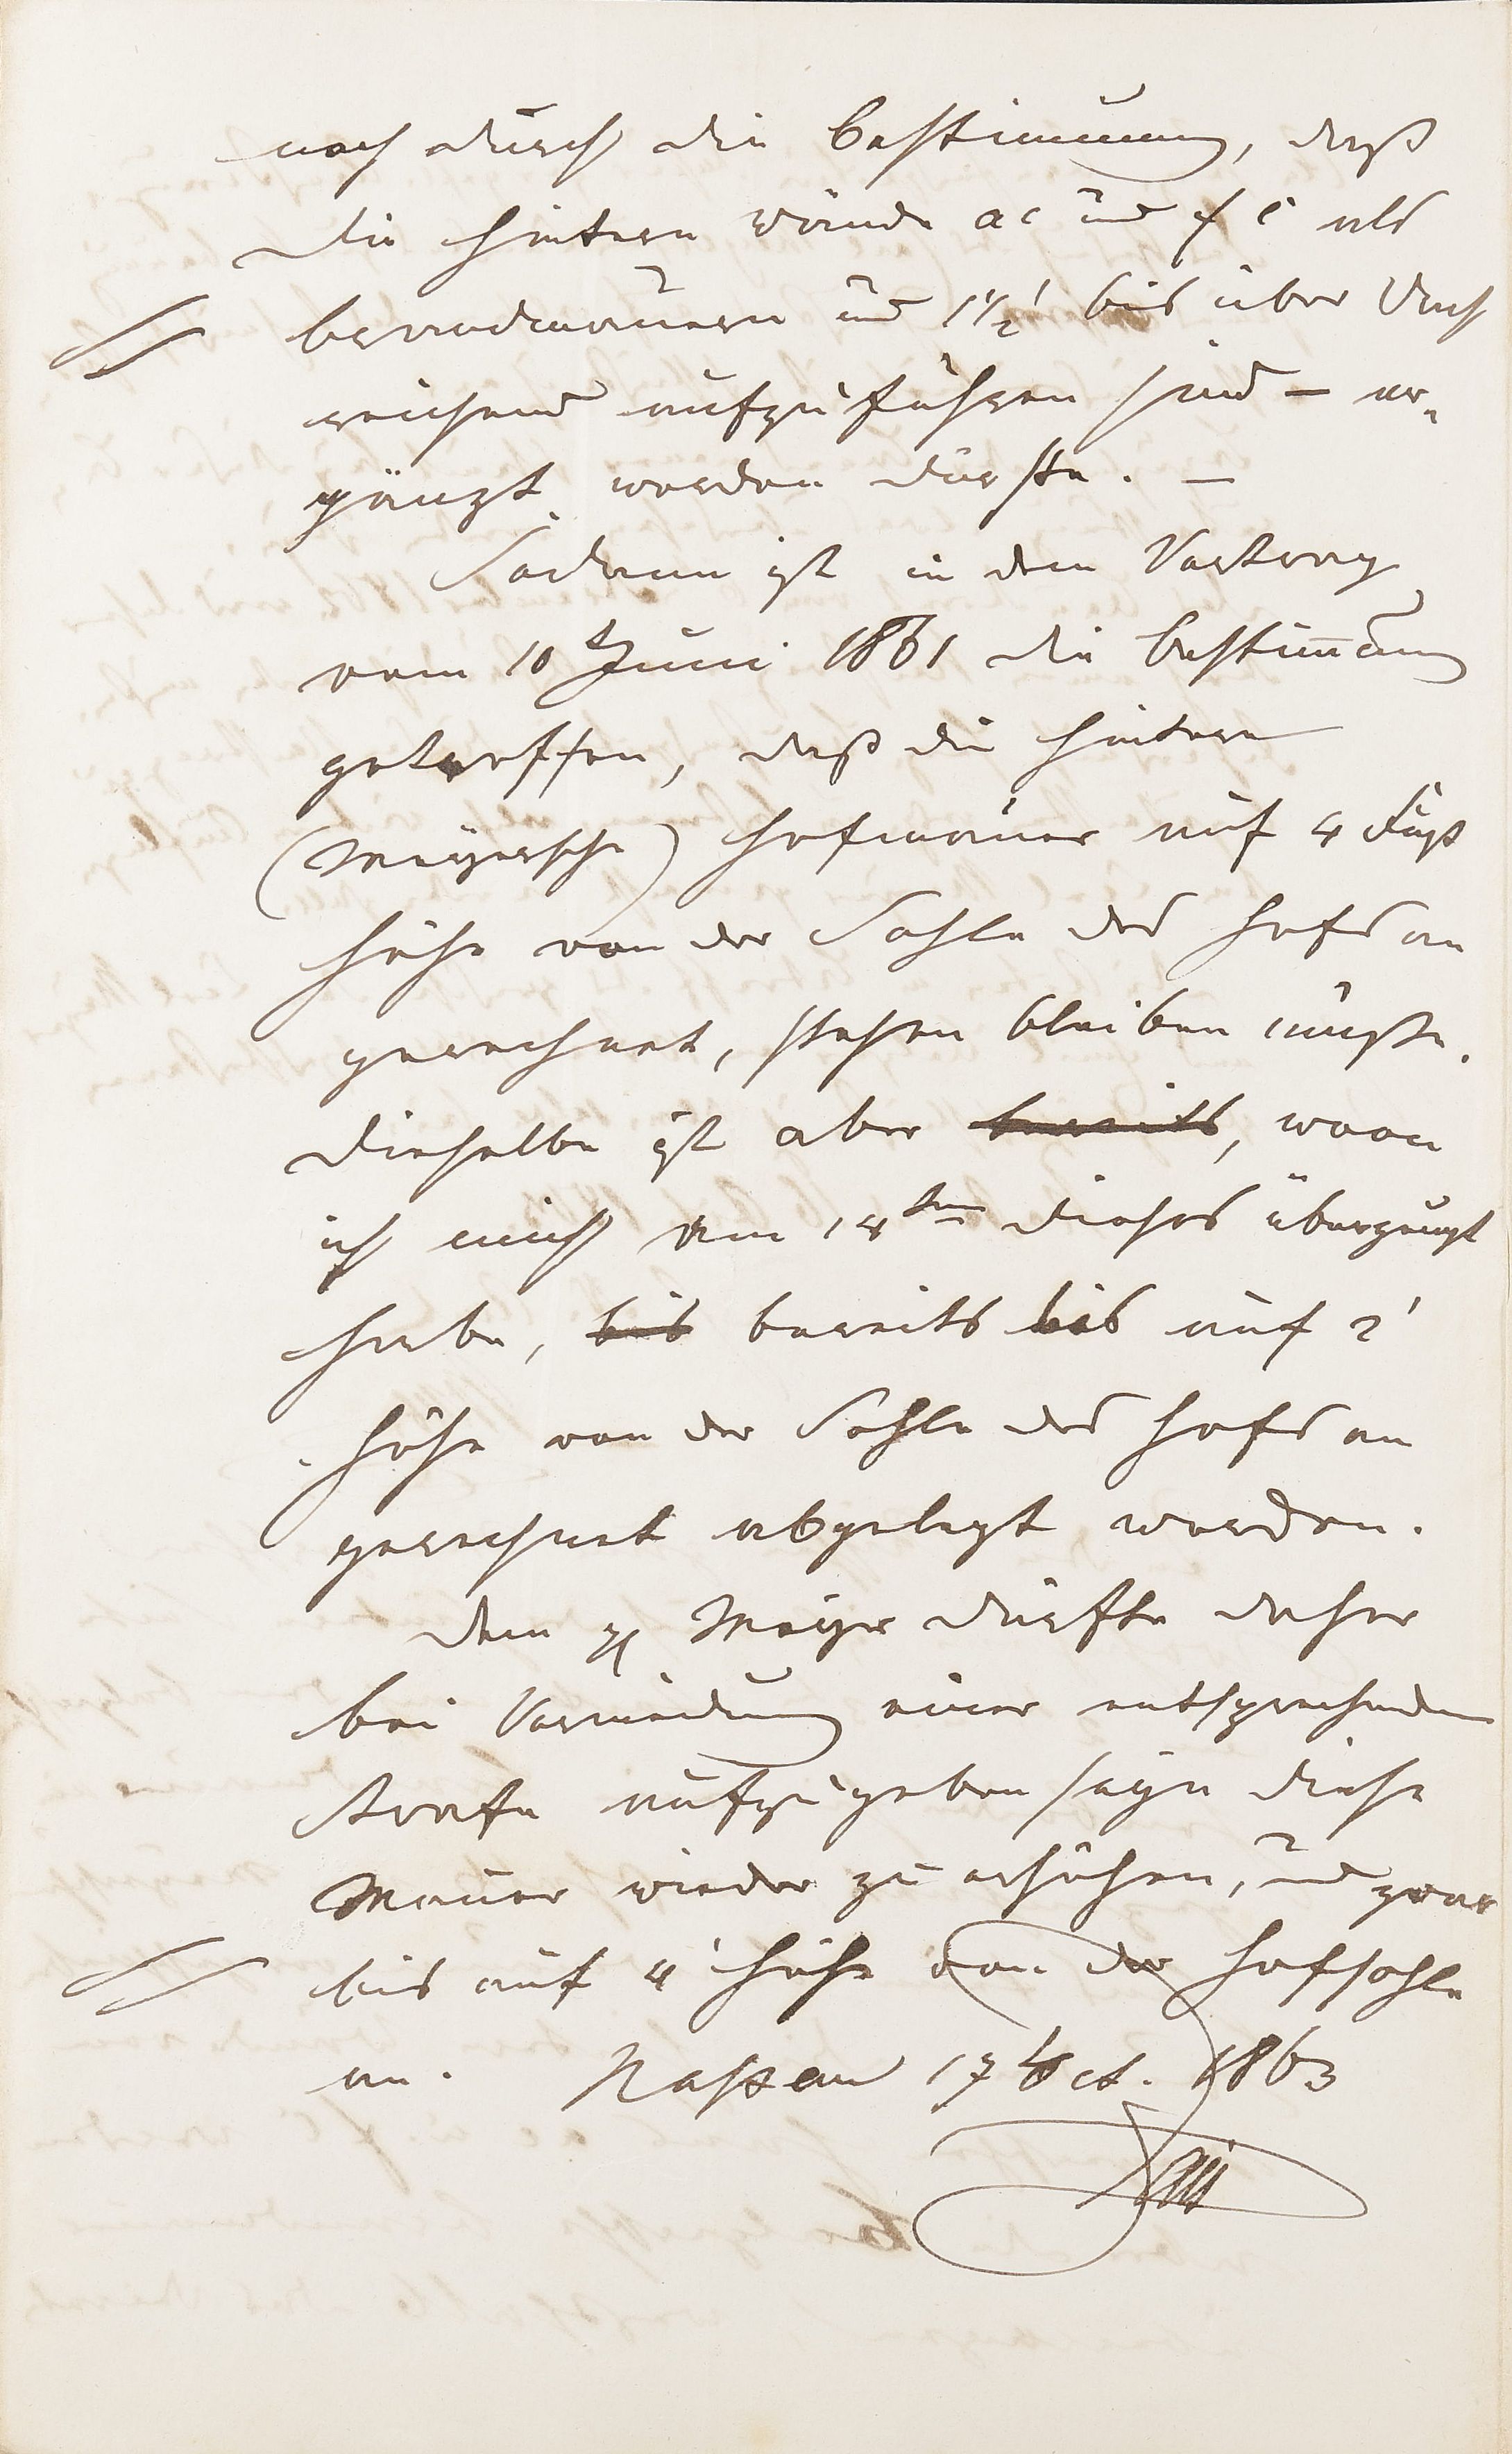 noch durch die Bestimmung, daß
die hintern Wände ac und f e als
Brandmauern und 1 1/2' bis über Dach
reichend aufzuführen sind – er-
gänzt werden dürfte. –
Sodann ist in dem Vertrag
vom 10t Juni 1861 die Bestimmung
getroffen, daß die hintere
(Mayersche) Hofmauer auf 4 Fuß
Höhe von der Sohle des Hofs an
gerechnet, stehen bleiben müße.
Dieselbe ist aber bereits, wovon
ich mich am 14ten dieses überzeugt
habe, bis bereits bis auf 2'
Höhe von der Sohle des Hofs an
gerechnet abgelegt worden.
Dem Mayer dürfte daher
bei Vermeidung einer entsprechenden
Strafe aufzugeben seyn diese
Mauer wieder zu erhöhen, und zwar
bis auf 4' Höhe von der Hofsohle
an. Nassau 17 Oct. 1863